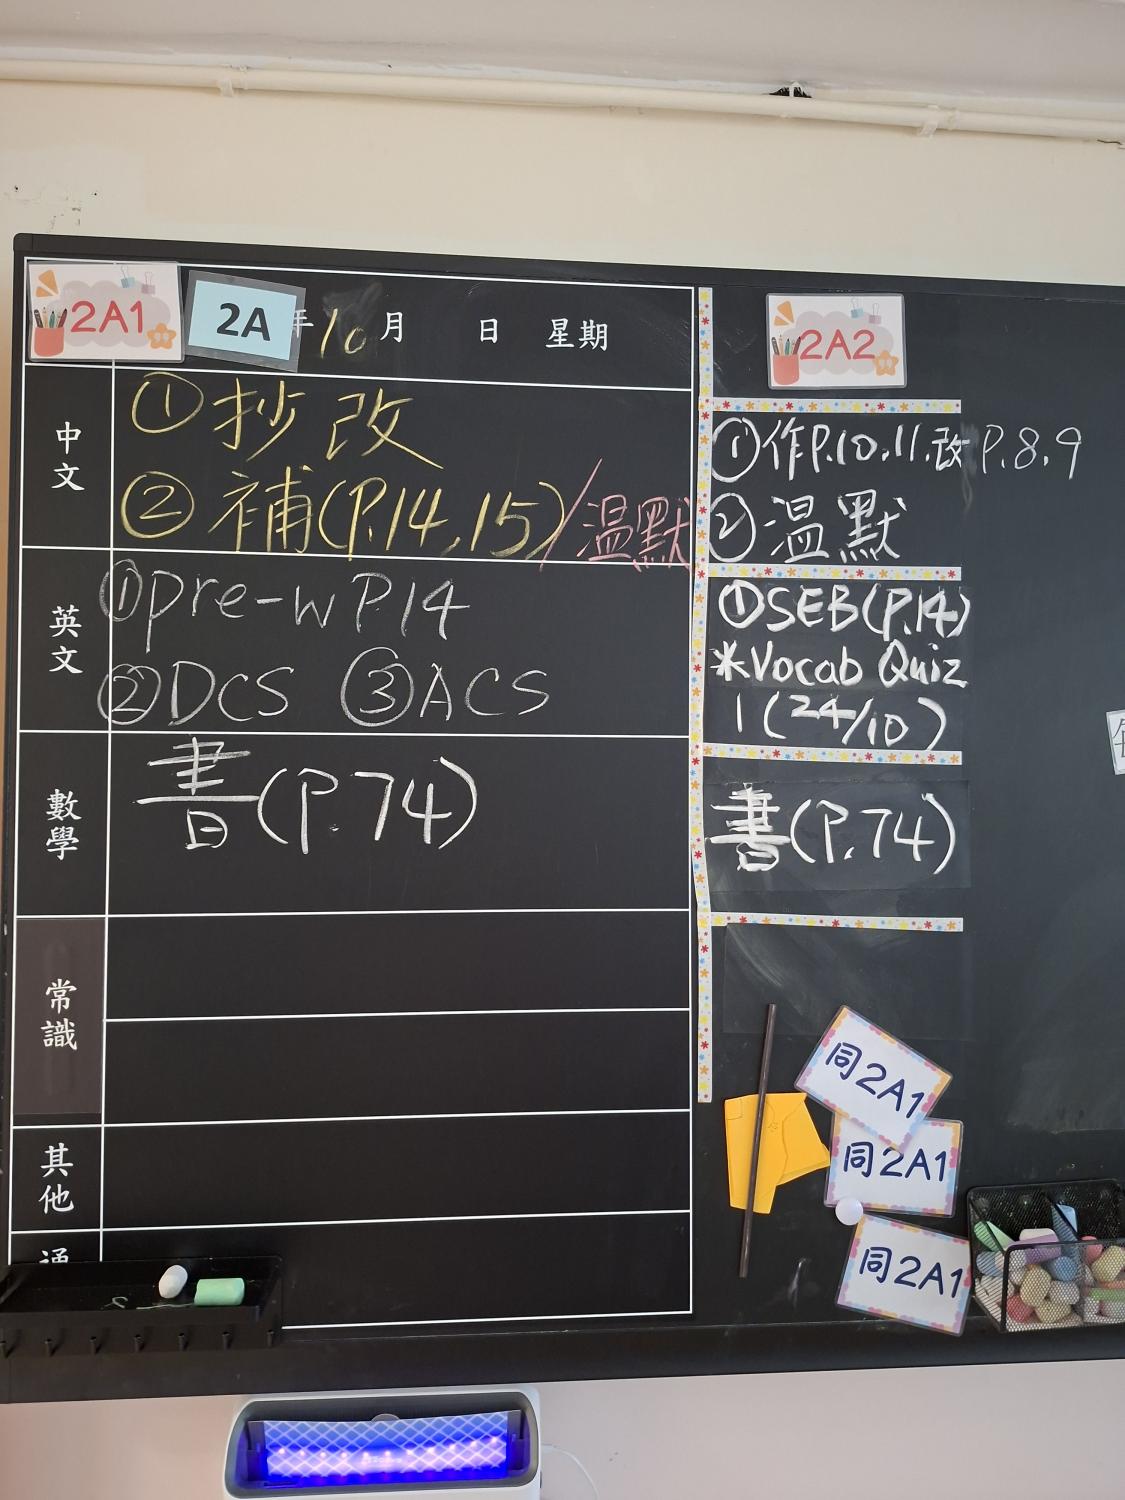 2A1
2A
年 10 月 日 星期
中文
①抄 改
②補(P.14,15)/溫默
英文
①pre-w P.14
②DCS ③ACS
數學
書(P.74)
常識
其他
2A2
①作P.10.11.改P.8.9
②溫默
①SEB(P.14)
*Vocab Quiz
1(24/10)
書(P.74)
同2A1
同2A1
同2A1